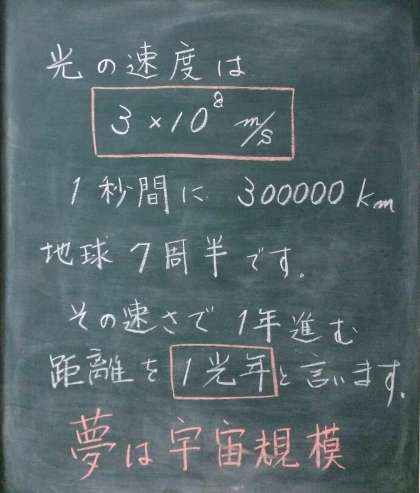 光の速度は
3×10⁸ m/s
1秒間に 300000 km
地球7周半です。
その速さで1年進む
距離を1光年と言います。
夢は宇宙規模